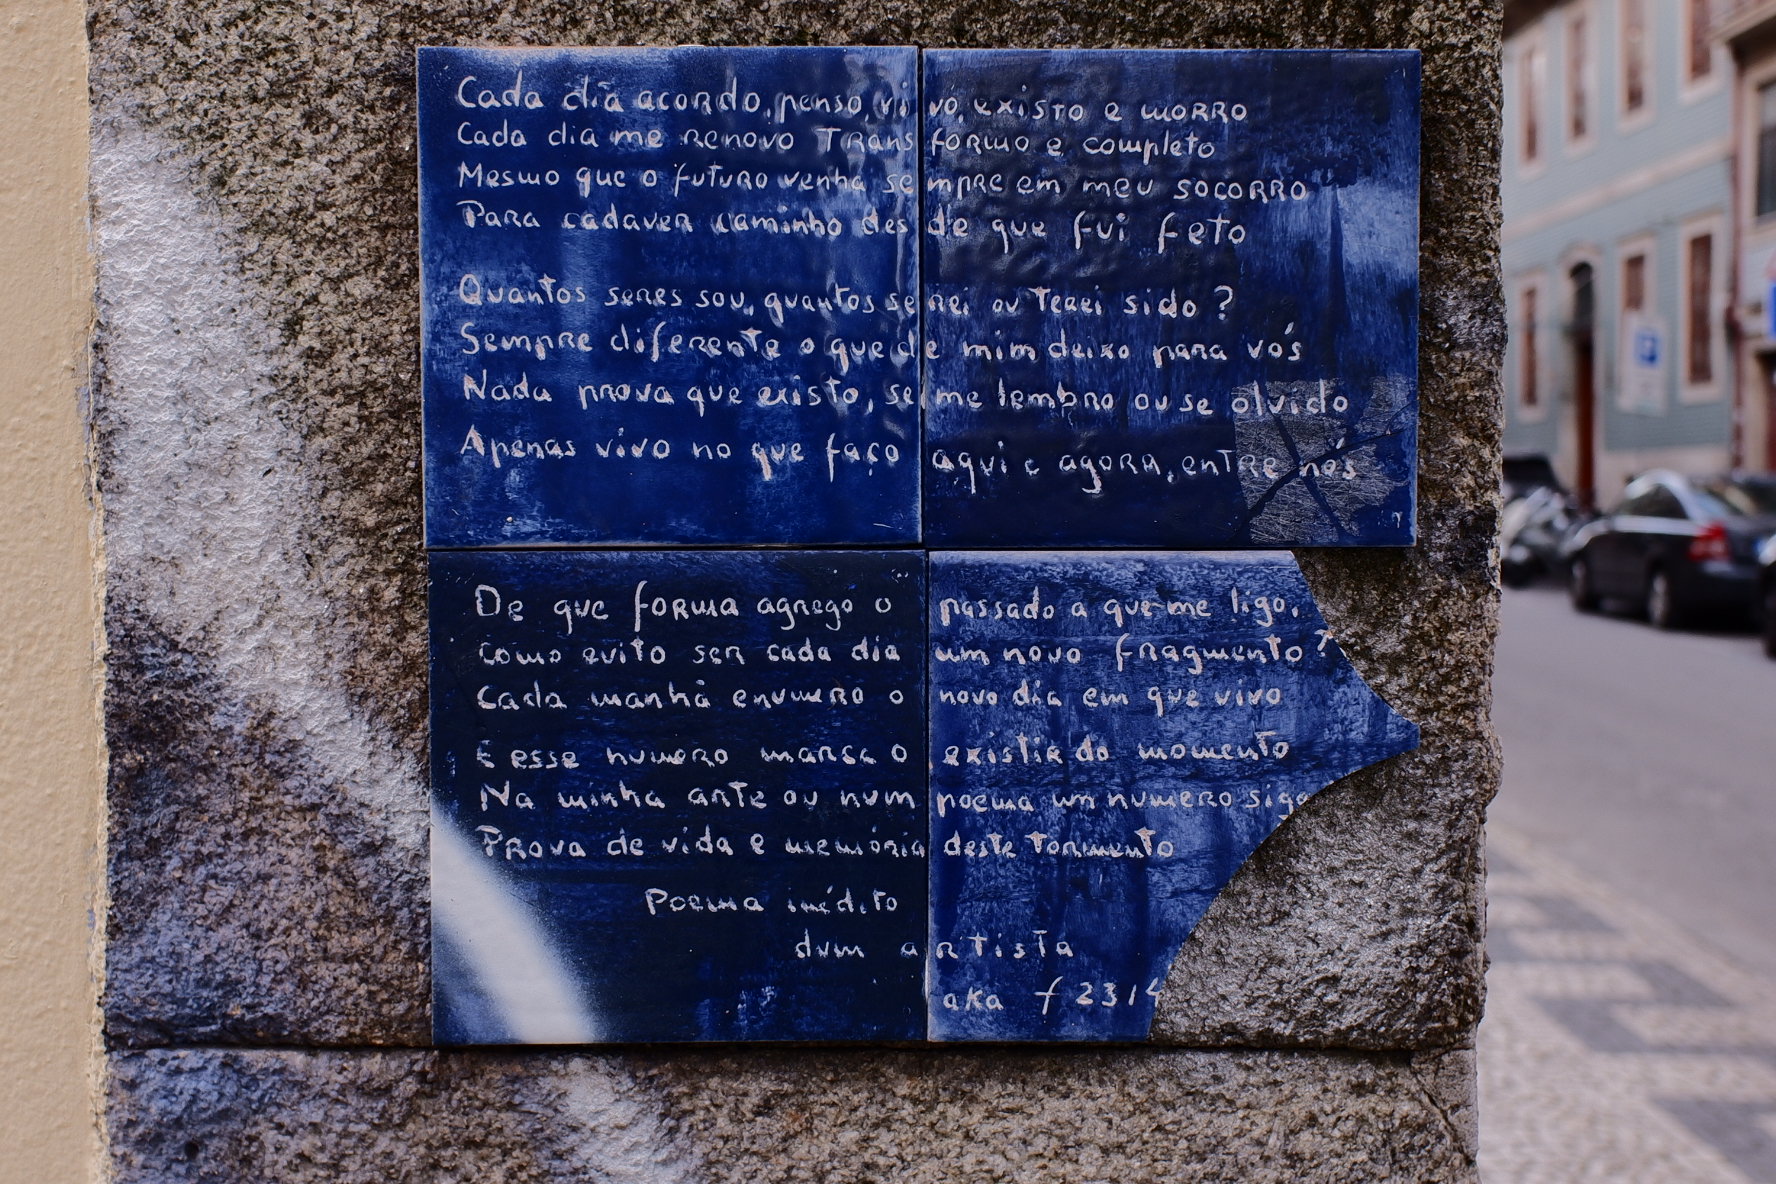 Cada dia acordo, penso, vivo, existo e morro
Cada dia me renovo Transformo e completo
Mesmo que o futuro venha sempre em meu socorro
Para cadaver caminho desde que fui feto
Quantos seres sou, quantos serei ou terei sido?
Sempre diferente o que de mim deixo para vós
Nada prova que existo, se me lembro ou se olvido
Apenas vivo no que faço aqui e agora, entre nós
De que forma agrego o passado a que me ligo,
Como evito ser cada dia um novo fragmento?
Cada manhã enumero o novo dia em que vivo
E esse numero marca o existir do momento
Na minha arte ou num poema um numero sigo
Prova de vida e memória deste tormento
Poema inédito
dum artista
aka f 2314